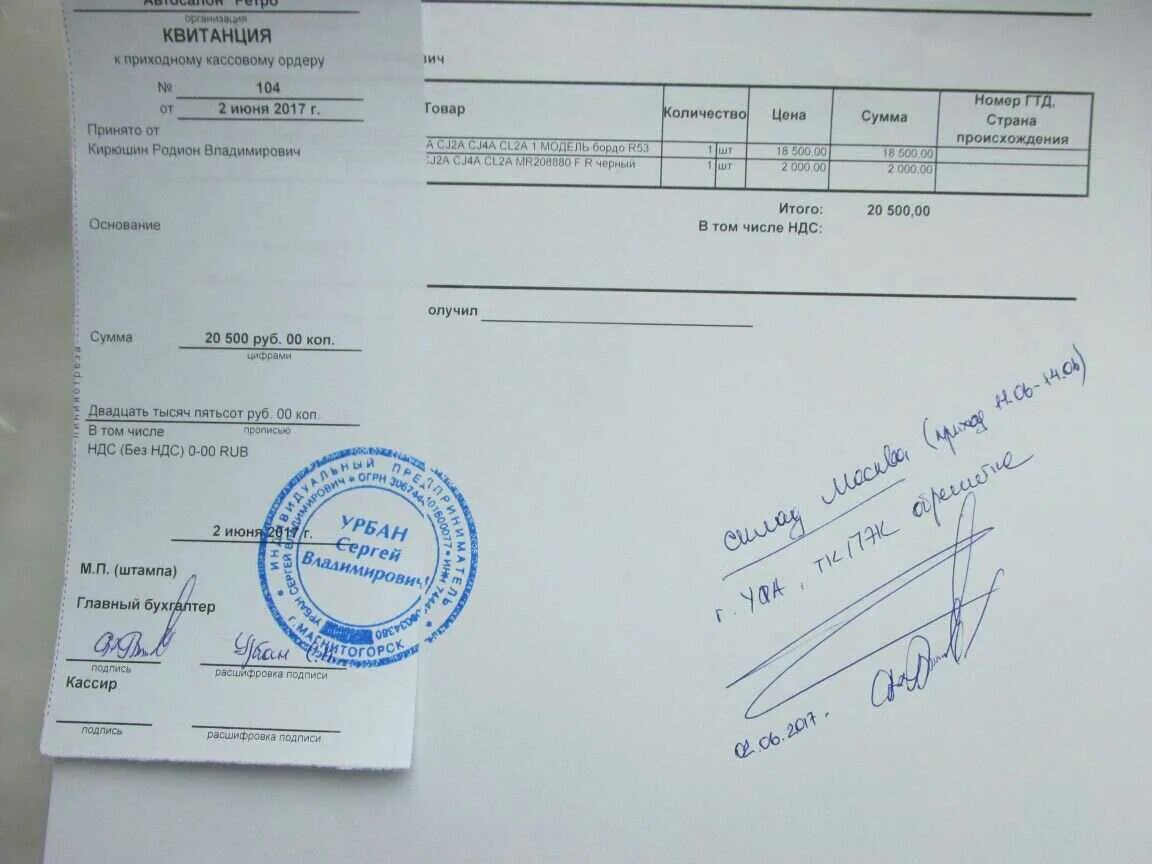 Автосалон "Ретро"
организация
КВИТАНЦИЯ
к приходному кассовому ордеру
№ 104
от 2 июня 2017 г.
Принято от
Кирюшин Родион Владимирович
Основание
Сумма 20 500 руб. 00 коп.
цифрами
Двадцать тысяч пятьсот руб. 00 коп.
прописью
В том числе
НДС (Без НДС) 0-00 RUB
2 июня 2017 г.
М.П. (штампа)
Главный бухгалтер
Урбан
подпись расшифровка подписи
Кассир
подпись расшифровка подписи
линия отреза
ИНДИВИДУАЛЬНЫЙ ПРЕДПРИНИМАТЕЛЬ
УРБАН СЕРГЕЙ ВЛАДИМИРОВИЧ * ОГРН
* ИНН
г. МАГНИТОГОРСК
УРБАН
Сергей
Владимирович
вич
Товар Количество Цена Сумма Номер ГТД, Страна происхождения
А CJ2A CJ4A CL2A 1 МОДЕЛЬ бордо R53 1 шт 18 500,00 18 500,00
CJ2A CJ4A CL2A MR208880 F R черный 1 шт 2 000,00 2 000,00
Итого: 20 500,00
В том числе НДС:
олучил
склад Москва (приход 11.06-14.06)
г. УФА, ТК ПЭК обрешетка
02.06.2017.